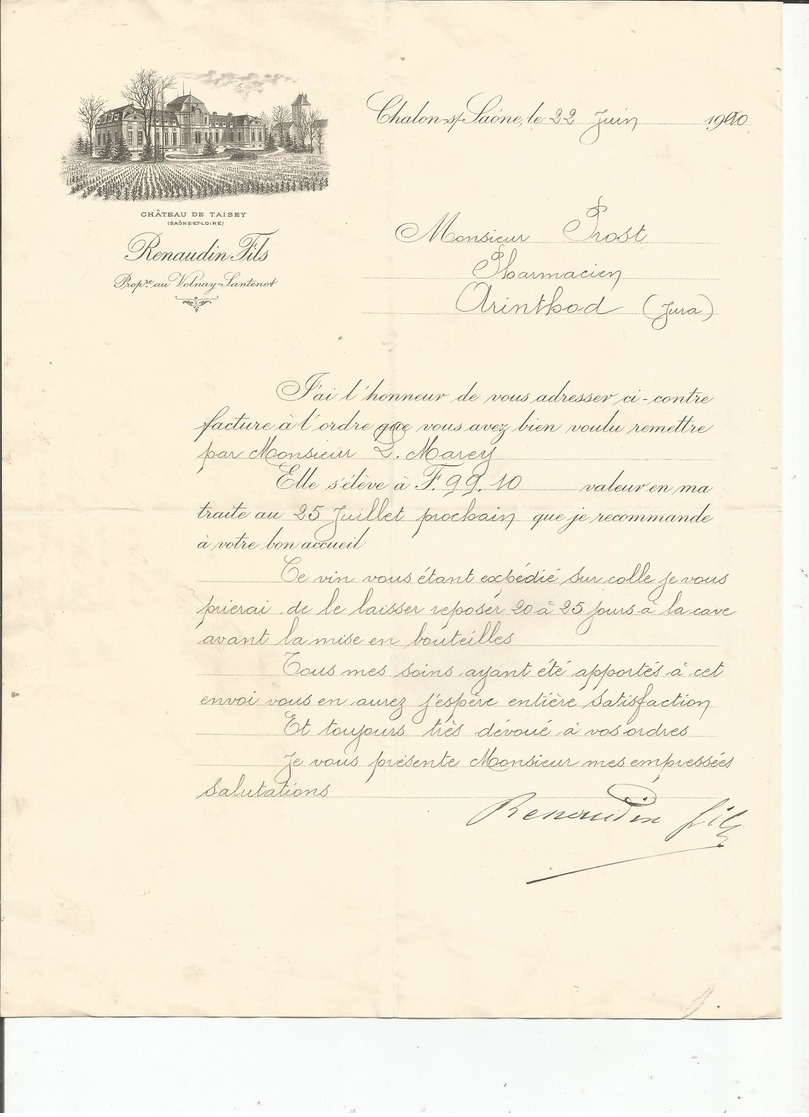 Chalon-s/-Saône, le 22 Juin 1910
CHÂTEAU DE TAISEY
(SAÔNE-ET-LOIRE)
Renaudin Fils
Prop.re au Volnay-Santenot
Monsieur Prost
Pharmacien
Arinthod (Jura)
J'ai l'honneur de vous adresser ci-contre
facture à l'ordre que vous avez bien voulu remettre
par Monsieur L. Marey
Elle s'élève à F. 99.10 valeur en ma
traite au 25 Juillet prochain que je recommande
à votre bon accueil
Ce vin vous étant expédié sur colle je vous
prierai de le laisser reposer 20 à 25 jours à la cave
avant la mise en bouteilles
Tous mes soins ayant été apportés à cet
envoi vous en aurez j'espère entière satisfaction
Et toujours très dévoué à vos ordres
Je vous présente Monsieur mes empressées
salutations
Renaudin fils